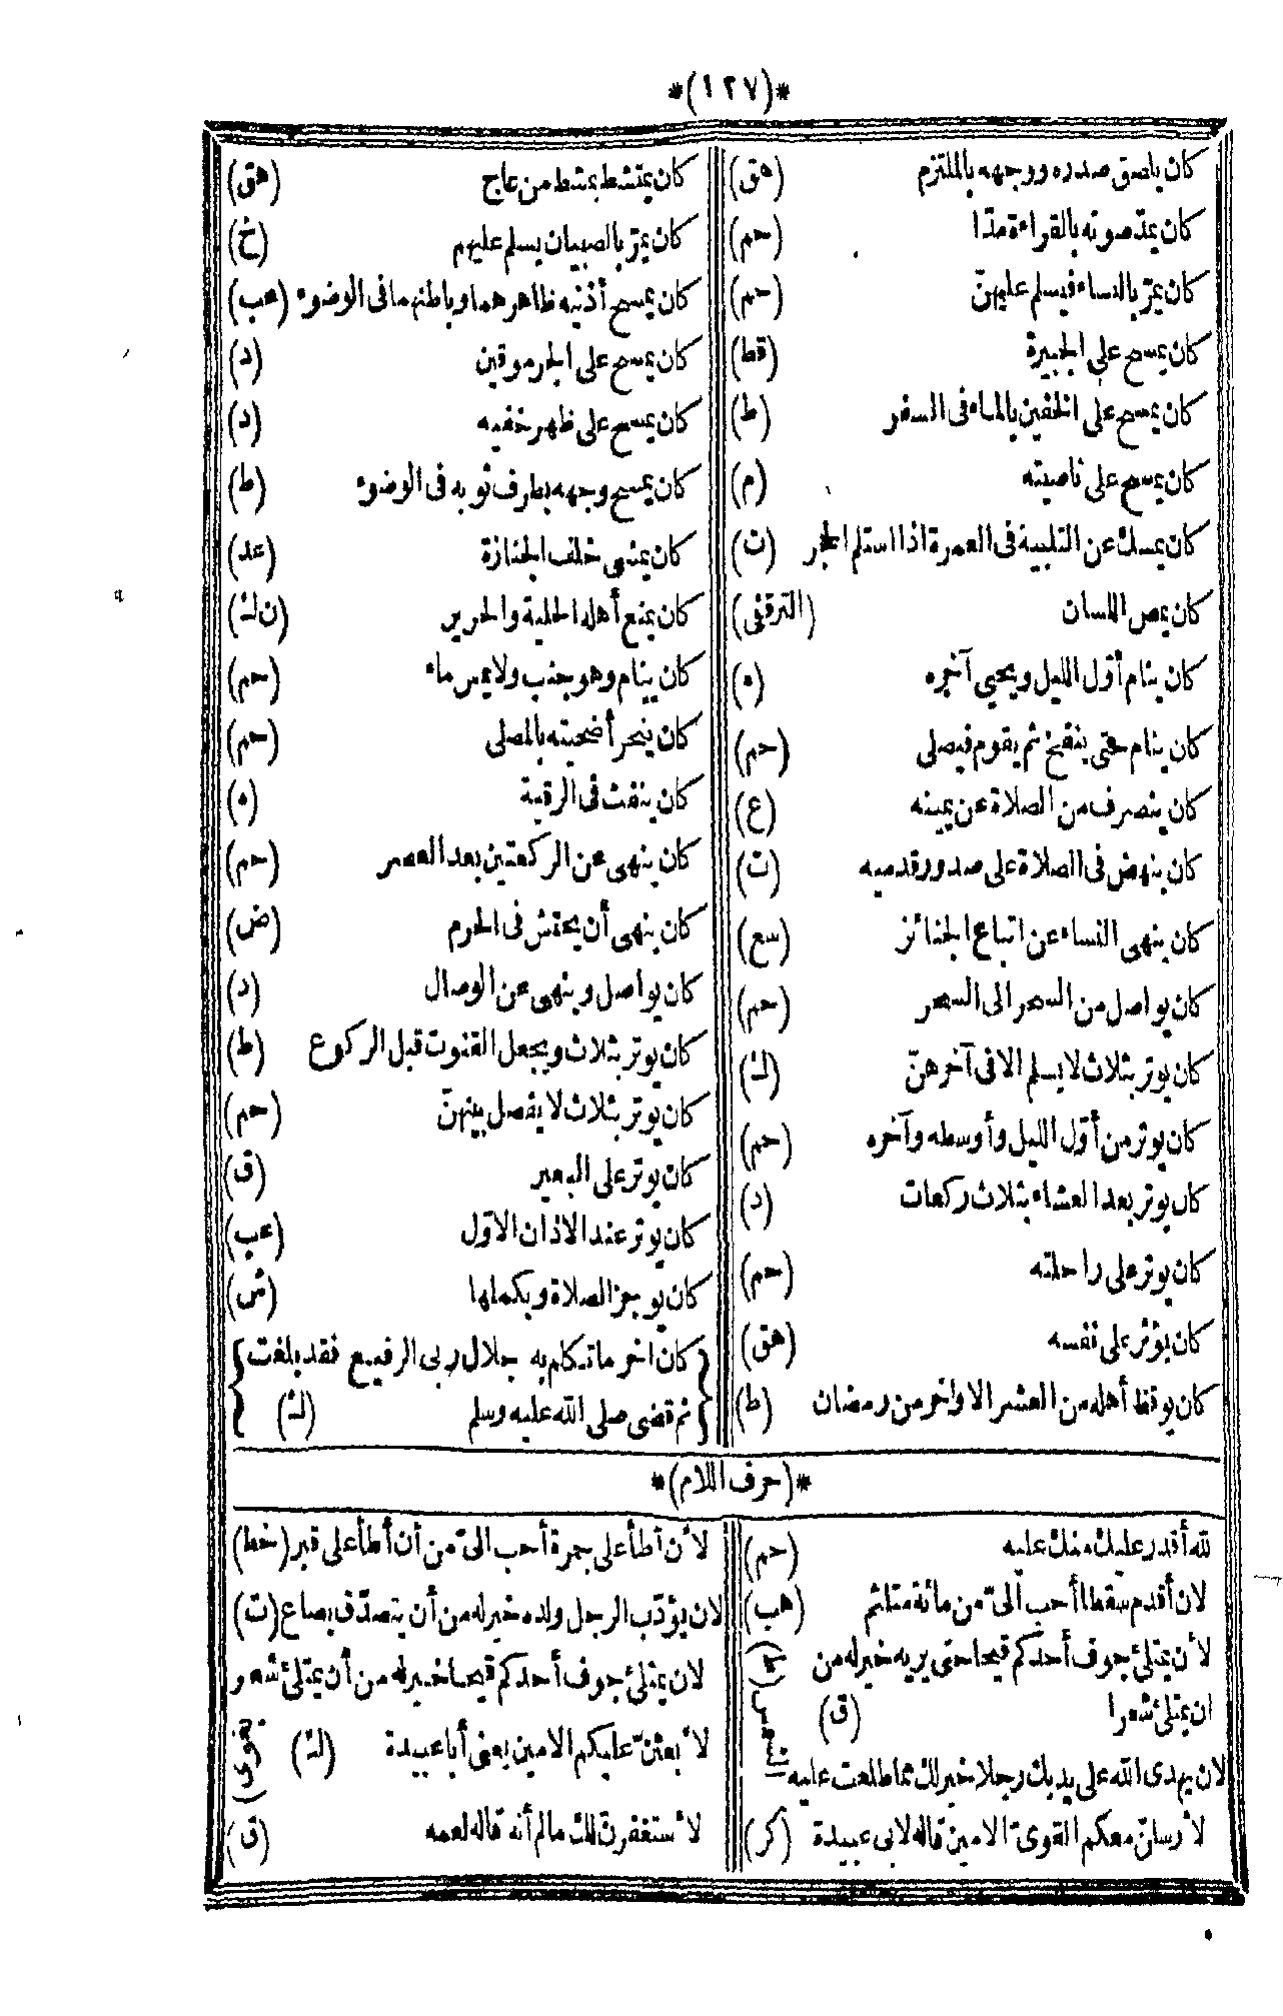 *(١٢٧)*
كان يلصق صدره ووجهه بالملتزم (هق)
كان يمدّ صوته بالقراءة مدّا (حم)
كان يمرّ بالنساء فيسلم عليهنّ (حم)
كان يمسح على الجبيرة (قط)
كان يمسح على الخفين بالماء فى السفر (ط)
كان يمسح على ناصيته (م)
كان يمسك عن التلبية فى العمرة اذا استلم الحجر (ت)
كان يمص اللسان (الترقفى)
كان ينام أوّل الليل ويحيى آخره (ه)
كان ينام حتى ينفخ ثم يقوم فيصلى (حم)
كان ينصرف من الصلاة عن يمينه (ع)
كان ينهض فى الصلاة على صدور قدميه (ت)
كان ينهى النساء عن اتباع الجنائز (سع)
كان يواصل من السحر الى السحر (حم)
كان يوتر بثلاث لا يسلم الا فى آخرهنّ (ك)
كان يوتر من أوّل الليل وأوسطه وآخره (حم)
كان يوتر بعد العشاء بثلاث ركعات (د)
كان يوتر على راحلته (حم)
كان يؤثر على نفسه (هق)
كان يوقظ أهله من العشر الاواخر من رمضان (ط)
كان يمتشط بمشط من عاج (هق)
كان يمرّ بالصبيان يسلم عليهم (خ)
كان يمسح أذنيه ظاهرهما وباطنهما فى الوضوء (عب)
كان يمسح على الجرموقين (د)
كان يمسح على ظهر خفيه (د)
كان يمسح وجهه بطرف ثوبه فى الوضوء (ط)
كان يمشى خلف الجنازة (عد)
كان يمنع أهله الحلية والحرير (ن ك)
كان ينام وهو جنب ولا يمس ماء (حم)
كان ينحر أضحيته بالمصلى (حم)
كان ينفث فى الرقية (ه)
كان ينهى عن الركعتين بعد العصر (حم)
كان ينهى أن يحتش فى الحرم (ض)
كان يواصل وينهى عن الوصال (د)
كان يوتر بثلاث ويجعل القنوت قبل الركوع (ط)
كان يوتر بثلاث لا يفصل بينهنّ (حم)
كان يوتر على البعير (ق)
كان يوتر عند الاذان الاوّل (عب)
كان يوجز الصلاة ويكملها (ش)
كان اخر ما تكلم به جلال ربى الرفيع فقد بلغت
ثم قضى صلى الله عليه وسلم (ك)
*(حرف اللام)*
لله أقدر عليك منك عليه (حم)
لان أقدم سقطا أحب الىّ من مائة مستلئم (هب)
لأن يمتلئ جوف أحدكم قيحا حتى يريه خير له من (ط)
ان يمتلئ شعرا (ق)
لان يهدى الله على يديك رجلا خير لك مما طلعت عليه الشمس
لأرسلنّ معكم القوىّ الامين قاله لابى عبيدة (كر)
لأن أطأ على جمرة أحب الىّ من أن أطأ على قبر (خط)
لان يؤدّب الرجل ولده خير له من أن يتصدّق بصاع (ت)
لان يمتلئ جوف أحدكم قيحا خير له من أن يمتلئ شعرا
لأبعثنّ عليكم الامين يعنى أبا عبيدة (ك) (بغوى)
لأستغفرنّ لك ما لم أنه قاله لعمه (ق)